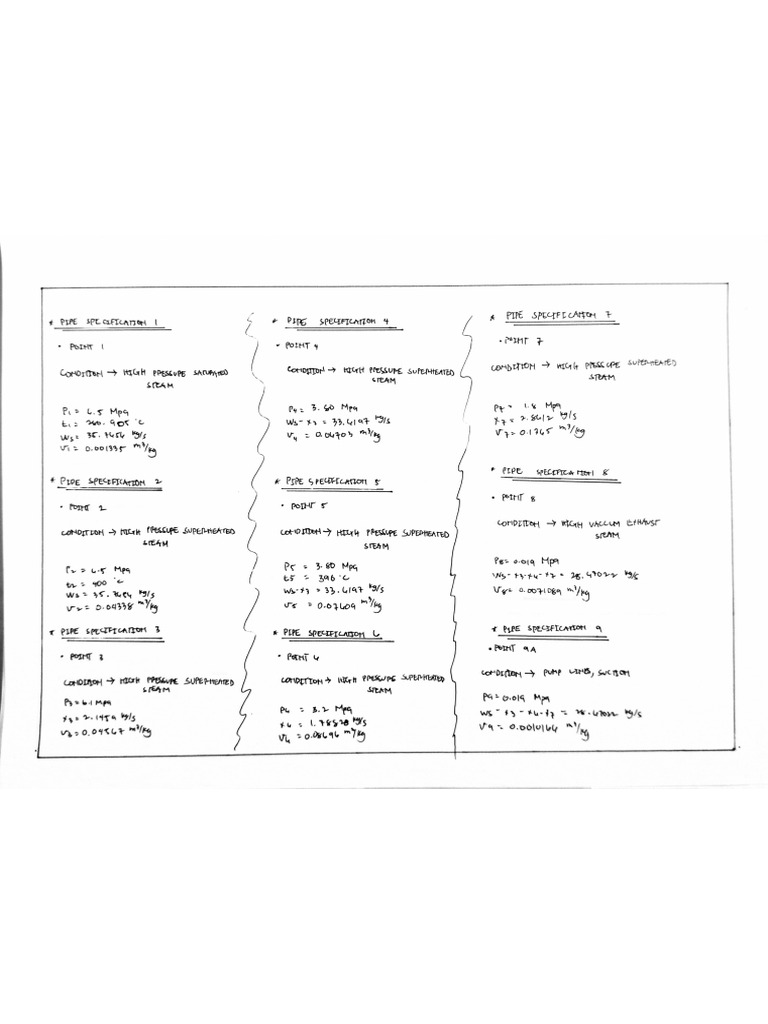 * PIPE SPECIFICATION 1
• POINT 1
CONDITION → HIGH PRESSURE SATURATED
STEAM
P1 = 6.5 Mpa
t1 = 280.905 °C
Ws = 35.7656 kg/s
V1 = 0.001335 m³/kg
* PIPE SPECIFICATION 2
• POINT 2
CONDITION → HIGH PRESSURE SUPERHEATED
STEAM
P2 = 6.5 Mpa
t2 = 400 °C
Ws = 35.7656 kg/s
V2 = 0.04338 m³/kg
* PIPE SPECIFICATION 3
• POINT 3
CONDITION → HIGH PRESSURE SUPERHEATED
STEAM
P3 = 6.1 Mpa
x3 = 2.1459 kg/s
V3 = 0.04567 m³/kg
* PIPE SPECIFICATION 4
• POINT 4
CONDITION → HIGH PRESSURE SUPERHEATED
STEAM
P4 = 3.80 Mpa
Ws - x3 = 33.6197 kg/s
V4 = 0.06703 m³/kg
* PIPE SPECIFICATION 5
• POINT 5
CONDITION → HIGH PRESSURE SUPERHEATED
STEAM
P5 = 3.80 Mpa
t5 = 396 °C
Ws - x3 = 33.6197 kg/s
V5 = 0.07609 m³/kg
* PIPE SPECIFICATION 6
• POINT 6
CONDITION → HIGH PRESSURE SUPERHEATED
STEAM
P6 = 3.2 Mpa
x6 = 1.78828 kg/s
V6 = 0.08696 m³/kg
* PIPE SPECIFICATION 7
• POINT 7
CONDITION → HIGH PRESSURE SUPERHEATED
STEAM
P7 = 1.8 Mpa
x7 = 2.8612 kg/s
V7 = 0.1365 m³/kg
* PIPE SPECIFICATION 8
• POINT 8
CONDITION → HIGH VACCUM EXHAUST
STEAM
P8 = 0.019 Mpa
Ws - x3 - x6 - x7 = 28.47022 kg/s
V8 = 0.0071089 m³/kg
* PIPE SPECIFICATION 9
• POINT 9A
CONDITION → PUMP LINES, SUCTION
P9 = 0.019 Mpa
Ws - x3 - x6 - x7 = 28.47022 kg/s
V9 = 0.0010164 m³/kg